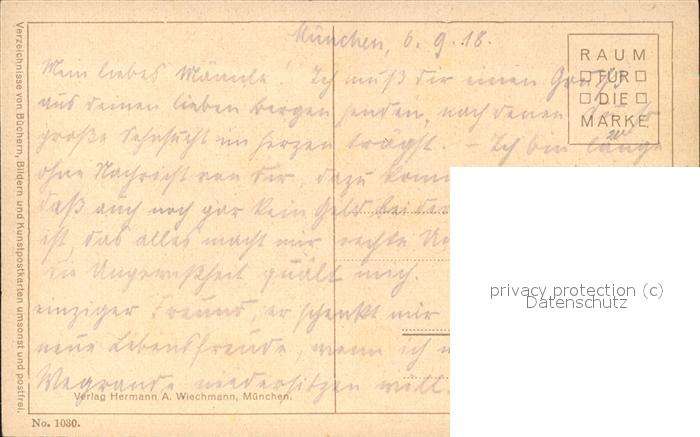 München, 6.9.18.
RAUM
FÜR
DIE
MARKE
Mein liebes Männle! Ich muß dir einen Gruß
aus deinen lieben Bergen senden, nach denen du
große Sehnsucht im Herzen trägst. – Ich bin lange
ohne Nachricht von dir, dazu
daß auch noch gar kein Geld bei der
ist, das alles macht mir rechte
Ungewißheit quält mich.
einziger Freund, er schenkt mir
neue Lebensfreude, wenn ich
Wegrande niedersitzen will.
Verlag Hermann A. Wiechmann, München.
No. 1030.
Verzeichnisse von Büchern, Bildern und Kunstpostkarten umsonst und postfrei.
privacy protection (c)
Datenschutz